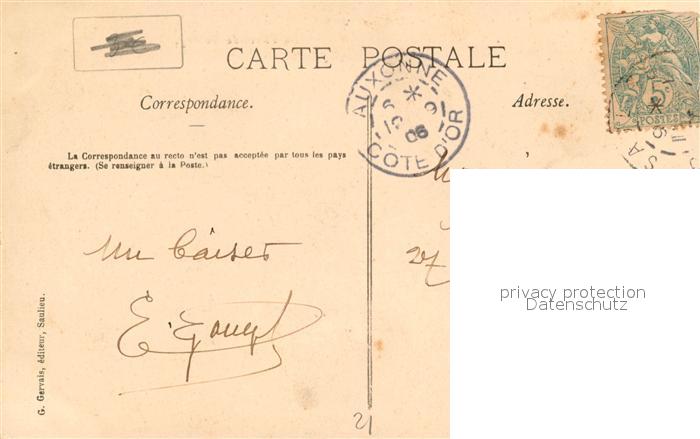 CARTE POSTALE
AUXONNE
6 9
10 06
COTE D'OR
5c
POSTES
Correspondance.
Adresse.
La Correspondance au recto n'est pas acceptée par tous les pays
étrangers. (Se renseigner à la Poste.)
un baiser
E.
27
privacy protection
Datenschutz
G. Gervais, éditeur, Saulieu.
21